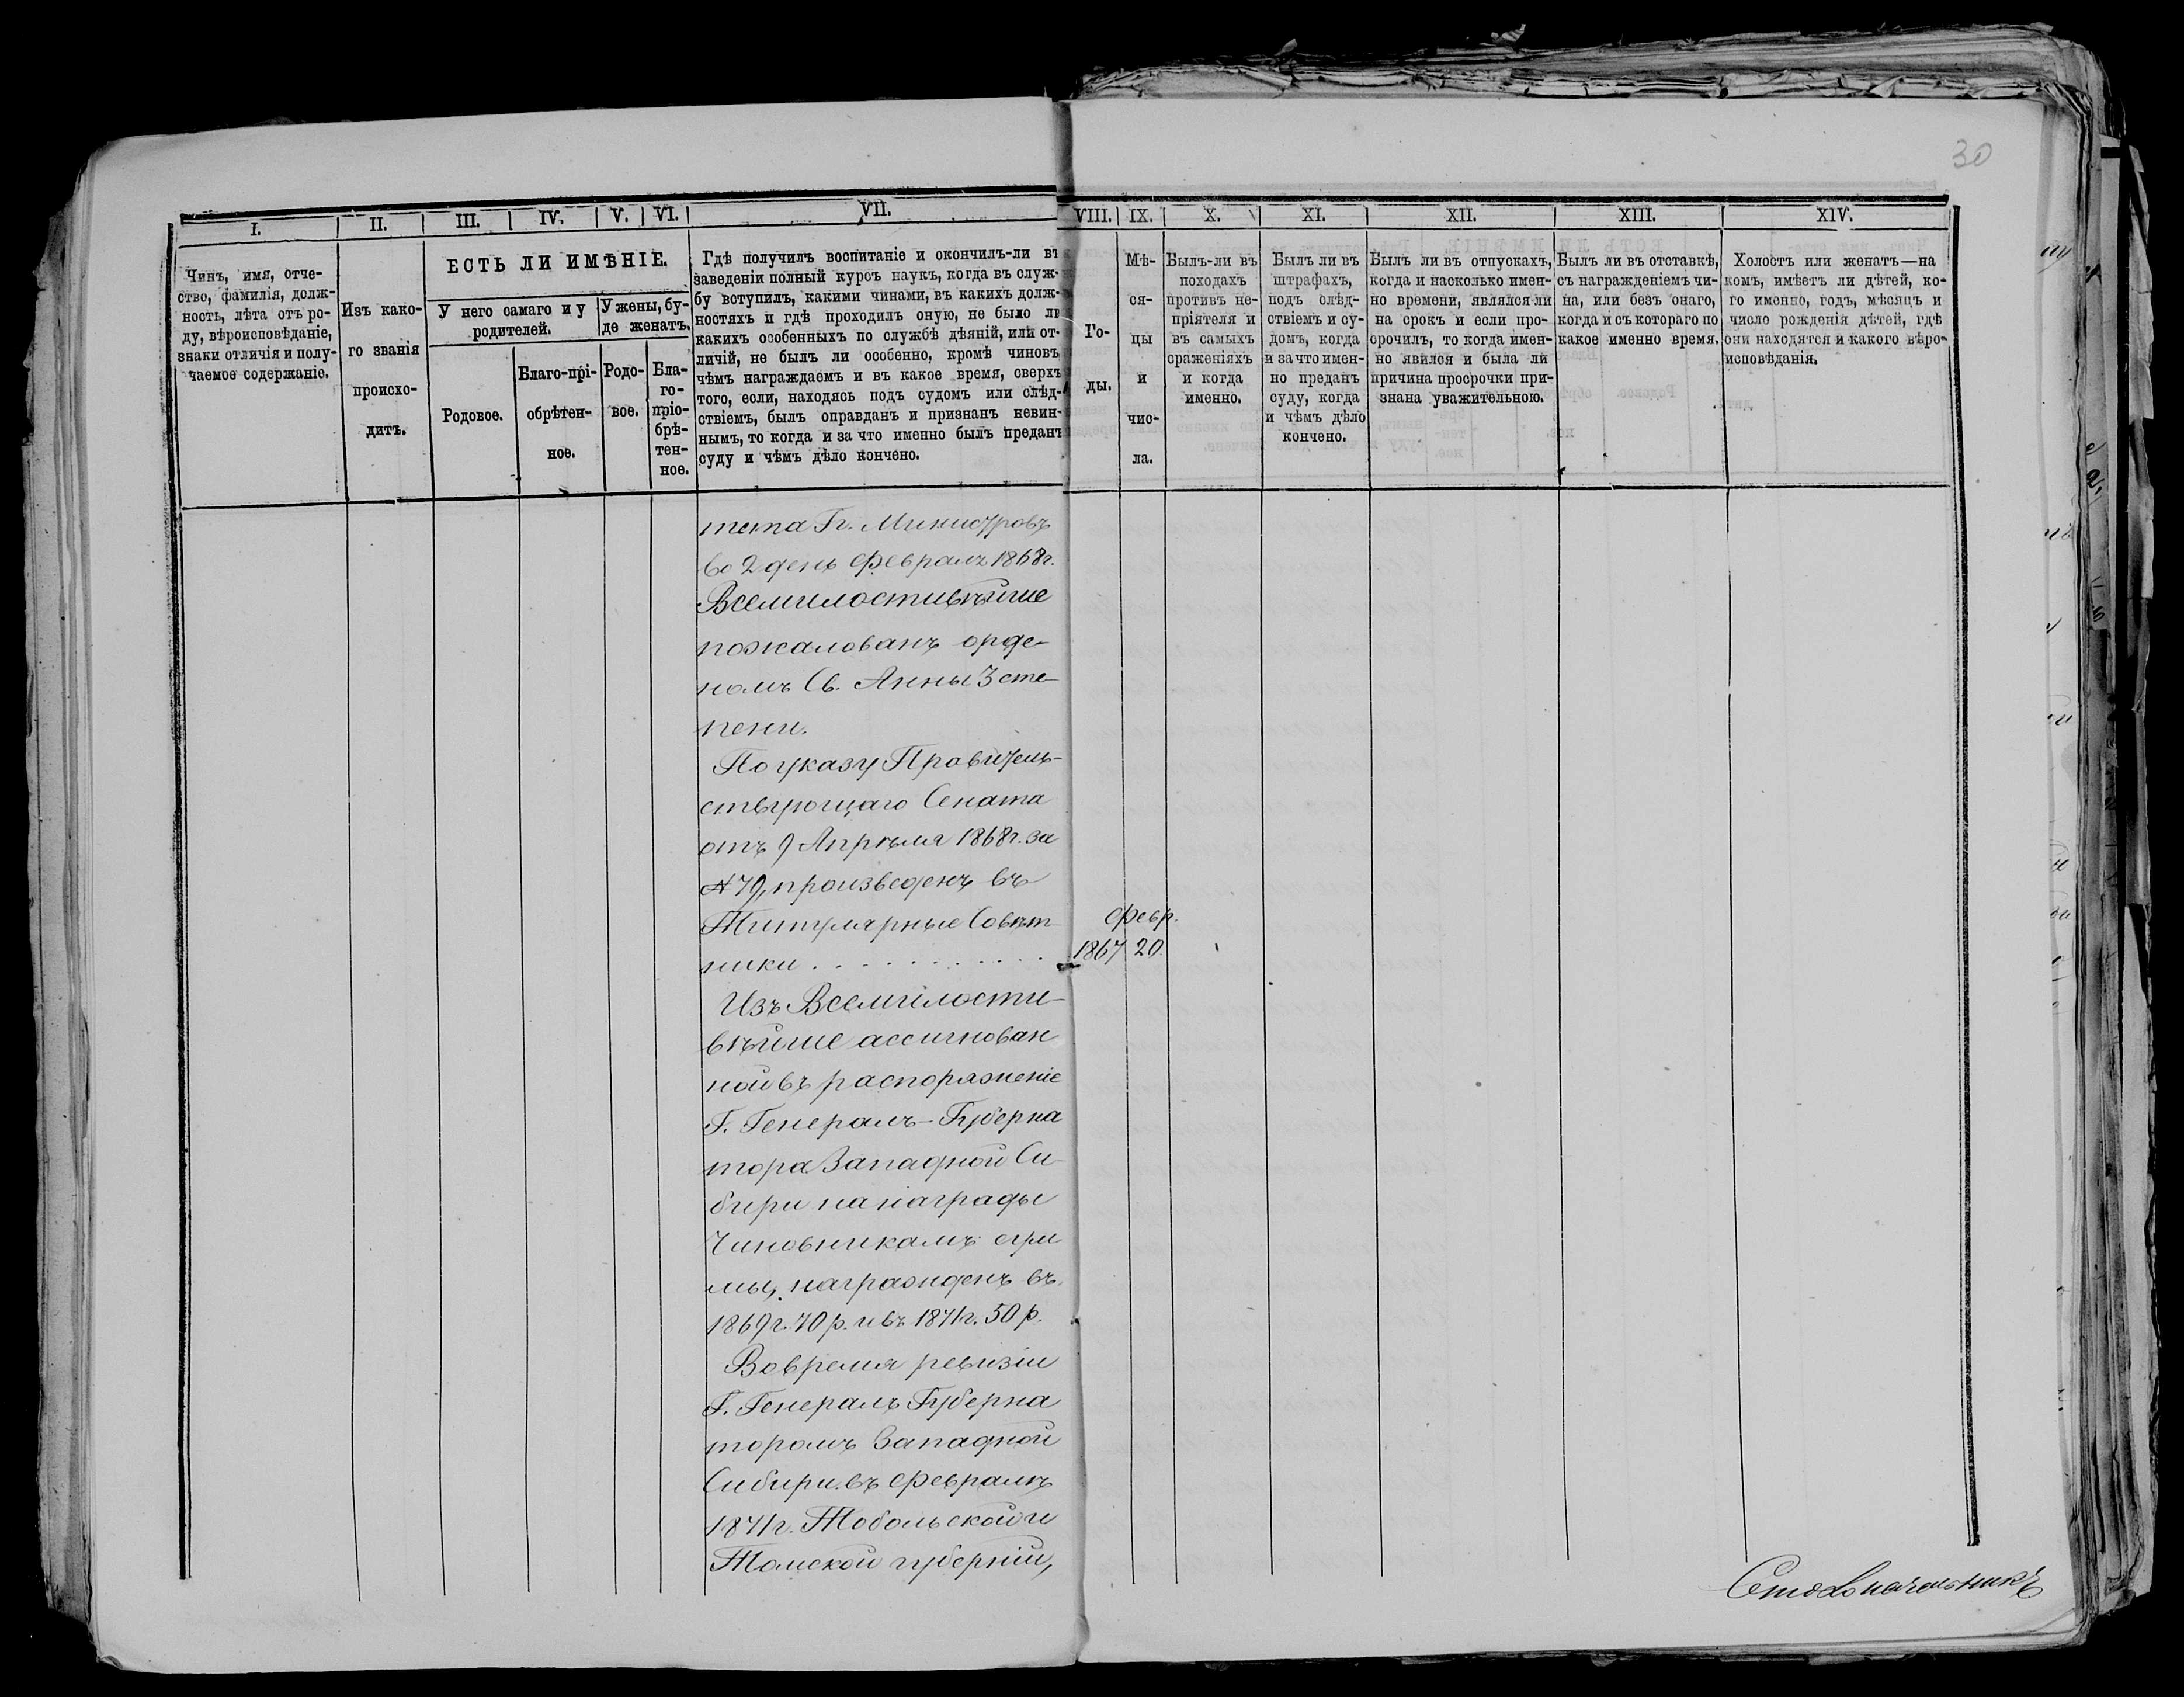 30
I.
II.
III.
IV.
V.
VI.
VII.
VIII.
IX.
X.
XI.
XII.
XIII.
XIV.
Чинъ, имя, отче-
ство, фамилія, долж-
ность, лѣта отъ ро-
ду, вѣроисповѣданіе,
знаки отличія и полу-
чаемое содержаніе.
Изъ како-
го званія
происхо-
дитъ.
ЕСТЬ ЛИ ИМѢНІЕ.
У него самаго и у
родителей.
У жены, бу-
де женатъ.
Родовое.
Благо-прі-
обрѣтен-
ное.
Родо-
вое.
Бла-
го-
пріо-
брѣ-
тен-
ное.
Гдѣ получилъ воспитаніе и окончилъ-ли въ
заведеніи полный курсъ наукъ, когда въ служ-
бу вступилъ, какими чинами, въ какихъ долж-
ностяхъ и гдѣ проходилъ оную, не было ли
какихъ особенныхъ по службѣ дѣяній, или от-
личій, не былъ ли особенно, кромѣ чиновъ,
чѣмъ награждаемъ и въ какое время, сверхъ
того, если, находясь подъ судомъ или слѣд-
ствіемъ, былъ оправданъ и признанъ невин-
нымъ, то когда и за что именно былъ преданъ
суду и чѣмъ дѣло кончено.
Го-
ды.
Мѣ-
ся-
цы
и
чис-
ла.
Былъ-ли въ
походахъ
противъ не-
пріятеля и
въ самыхъ
сраженіяхъ
и когда
именно.
Былъ ли въ
штрафахъ,
подъ слѣд-
ствіемъ и су-
домъ, когда
и за что имен-
но преданъ
суду, когда
и чѣмъ дѣло
кончено.
Былъ ли въ отпускахъ,
когда и насколько имен-
но времени, являлся ли
на срокъ и если про-
срочилъ, то когда имен-
но явился и была ли
причина просрочки при-
знана уважительною.
Былъ ли въ отставкѣ,
съ награжденіемъ чи-
на, или безъ онаго,
когда и съ котораго по
какое именно время.
Холостъ или женатъ—на
комъ, имѣетъ ли дѣтей, ко-
го именно, годъ, мѣсяцъ и
число рожденія дѣтей, гдѣ
они находятся и какого вѣро-
исповѣданія.
тета Гг. Министровъ
во 2 день Февраля 1868г.
Всемилостивѣйше
пожалованъ орде-
номъ Св. Анны 3 сте-
пени.
По указу Правитель-
ствующаго Сената
отъ 9 Апрѣля 1868г. за
№ 79, произведенъ въ
Титулярные Совѣт-
ники . . . . . . . . . . .
Февр.
1867 20.
Изъ Всемилости-
вѣйше ассигнован
ной въ распоряженіе
Г. Генералъ-Губерна
тора Западной Си-
бири на награды
Чиновникамъ сум
мы, награжденъ въ
1869г. 70 р. и въ 1871г. 50 р.
Во время ревизіи
Г. Генералъ Губерна
торомъ Западной
Сибири въ Февралѣ
1871г. Тобольской и
Томской губерніи,
Столоначальникъ